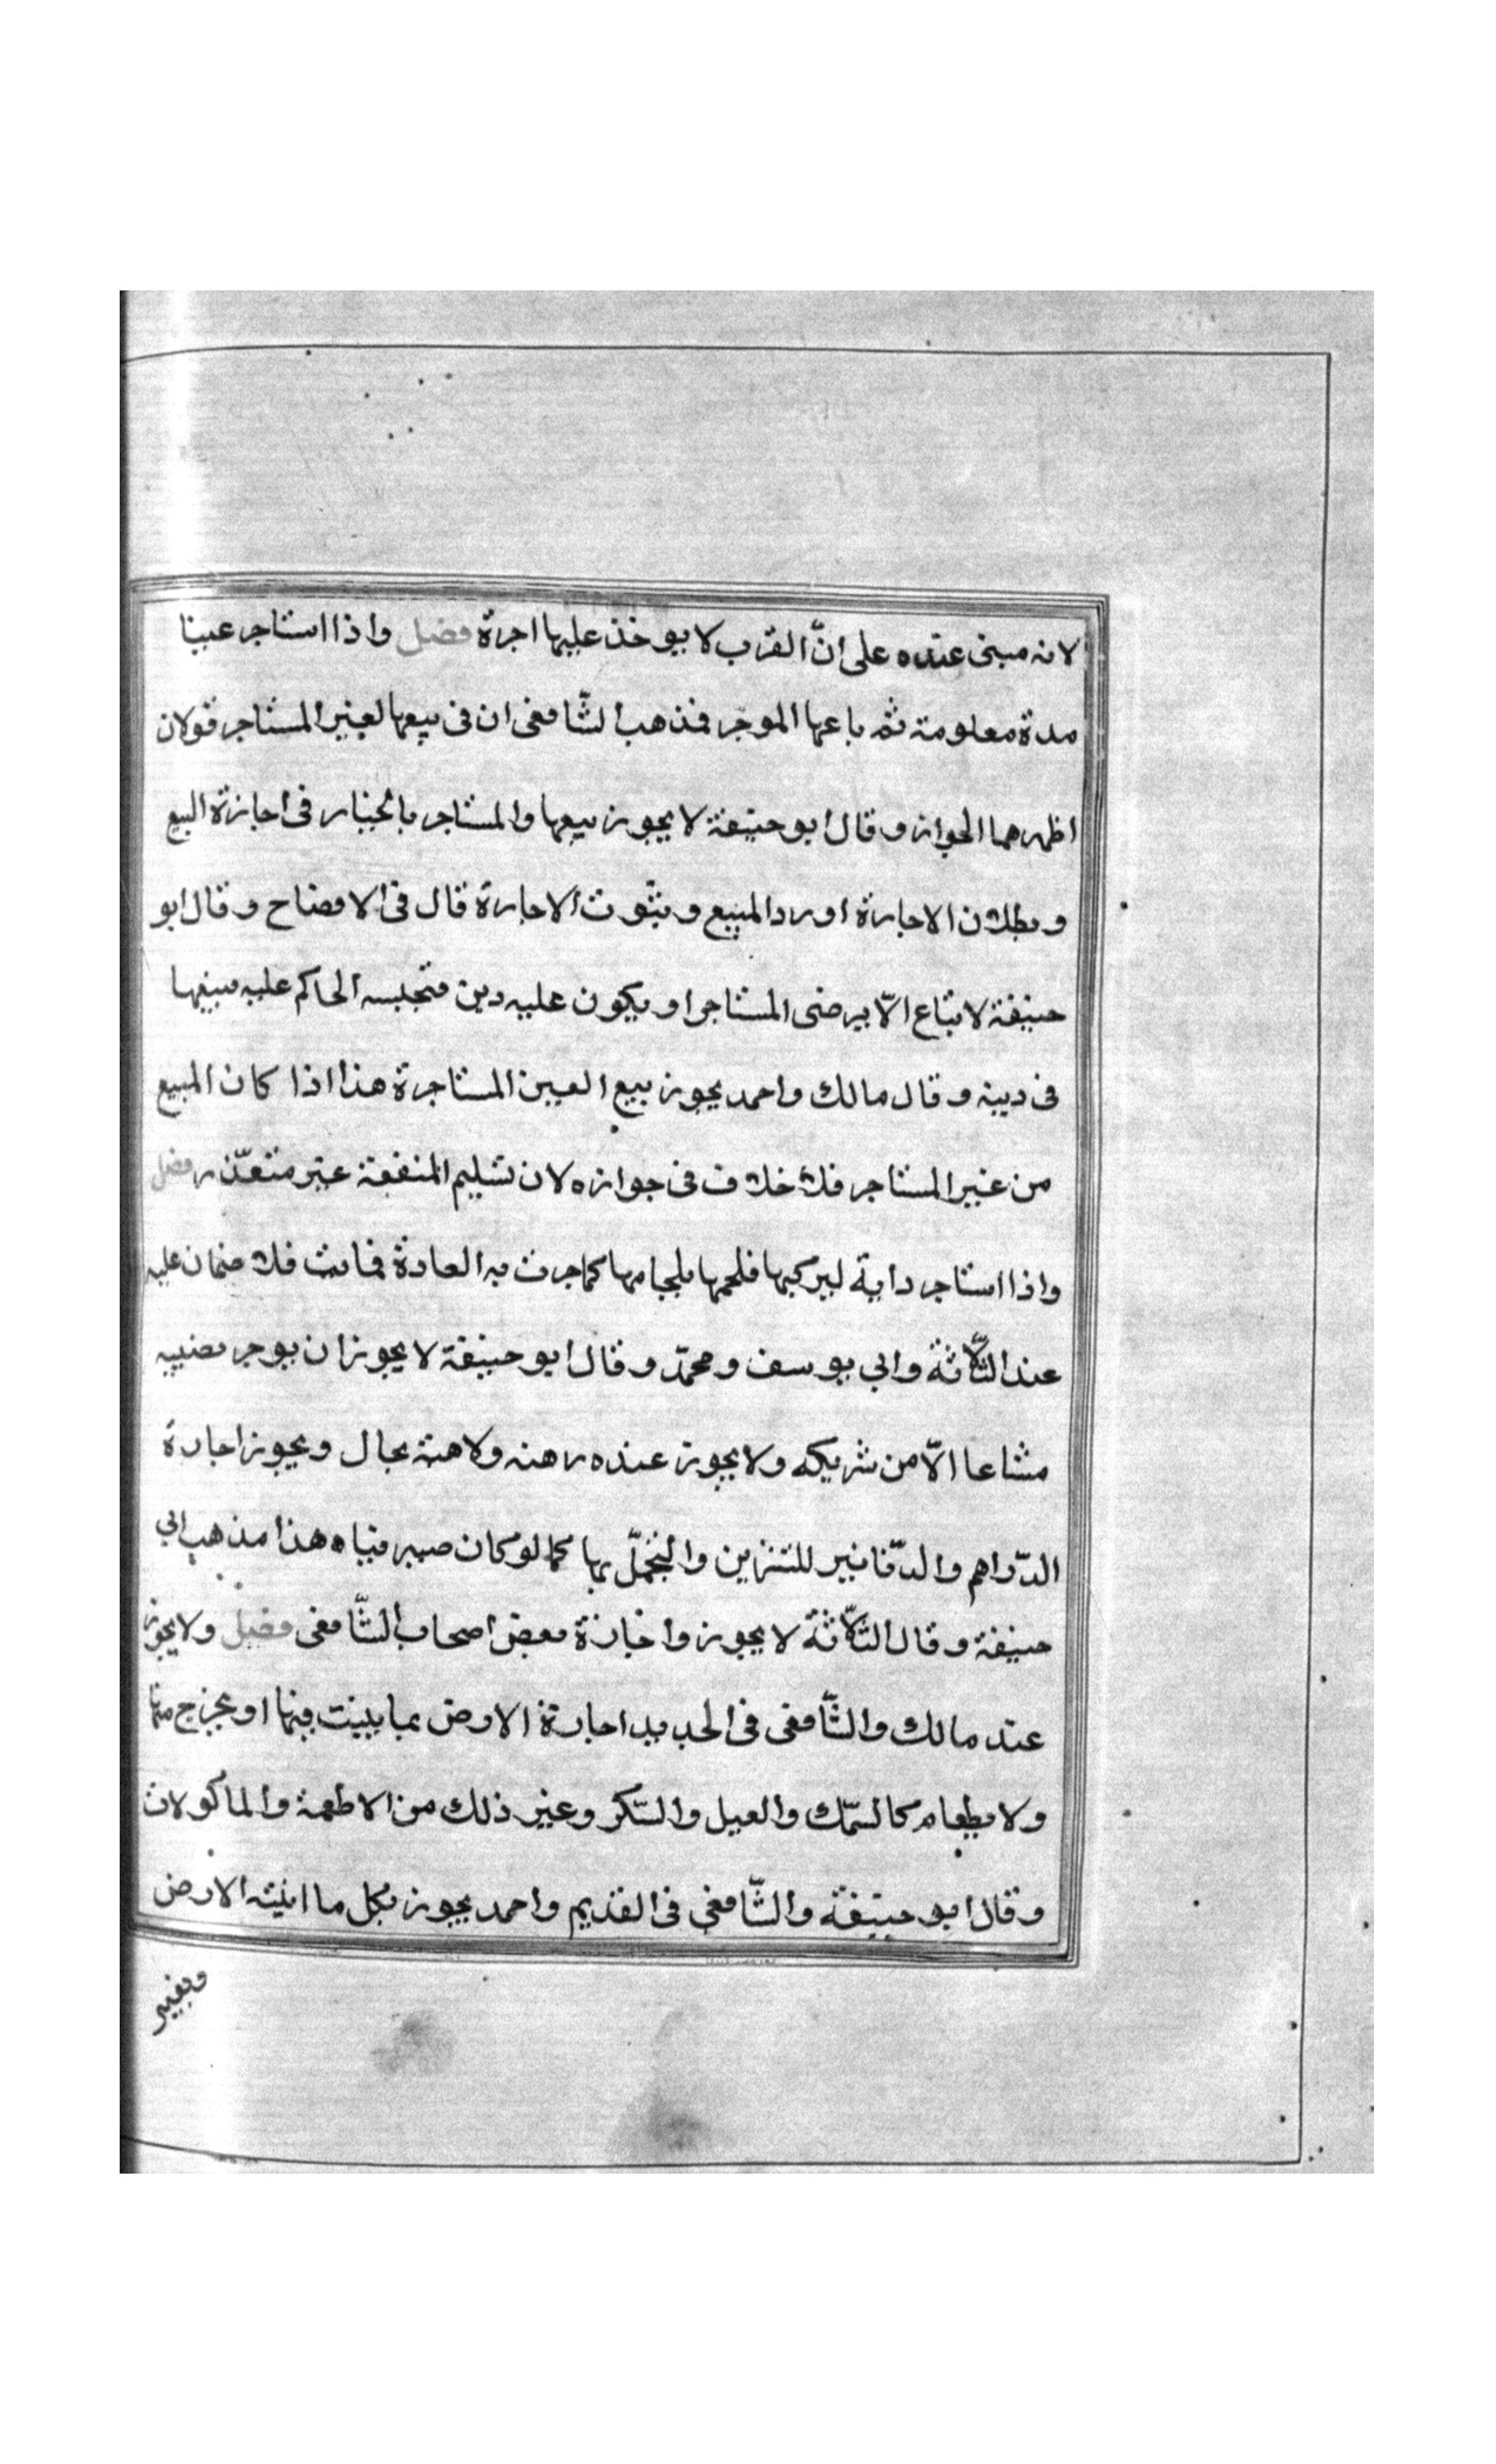 لانه مبنى عنده على انّ القرب لا يوخذ عليها اجرة فصل واذا استاجر عينا
مدة معلومة ثم باعها الموجر فمذهب الشّافعى ان فى بيعها لغير المستاجر قولان
اظهرهما الجواز وقال ابو حنيفة لا يجوز بيعها والمستاجر بالخيار فى اجازة البيع
وبطلان الاجارة او رد المبيع وثبوت الاجارة قال فى الافصاح وقال ابو
حنيفة لا تباع الّا برضى المستاجر او يكون عليه دين فتحبسه الحاكم عليه فيبيعها
فى دينه وقال مالك واحمد يجوز بيع العين المستاجرة هذا اذا كان المبيع
من غير المستاجر فلا خلاف فى جوازه لان تسليم المنفعة غير متعذّر فصل
واذا استاجر دابة ليركبها فلجمها بلجامها كما جرت به العادة فماتت فلا ضمان عليه
عند الثّلاثة وابي يوسف ومحمّد وقال ابو حنيفة لا يجوز ان يوجر نصيبه
مشاعا الّا من شريكه ولا يجوز عنده رهنه ولا هبته بحال ويجوز اجارة
الدّراهم والدّنانير للتزين والتجمّل بها كما لو كان صيرفيا هذا مذهب ابي
حنيفة وقال الثّلاثة لا يجوز واجازة بعض اصحاب الشّافعى فصل ولا يجوز
عند مالك والشّافعى فى الجديد اجارة الارض بما ينبت فيها او يخرج منها
ولا بطعام كالسّمك والعسل والسّكر وغير ذلك من الاطعمة والماكولات
وقال ابو حنيفة والشّافعي فى القديم واحمد يجوز بكل ما انبتته الارض
وبغير